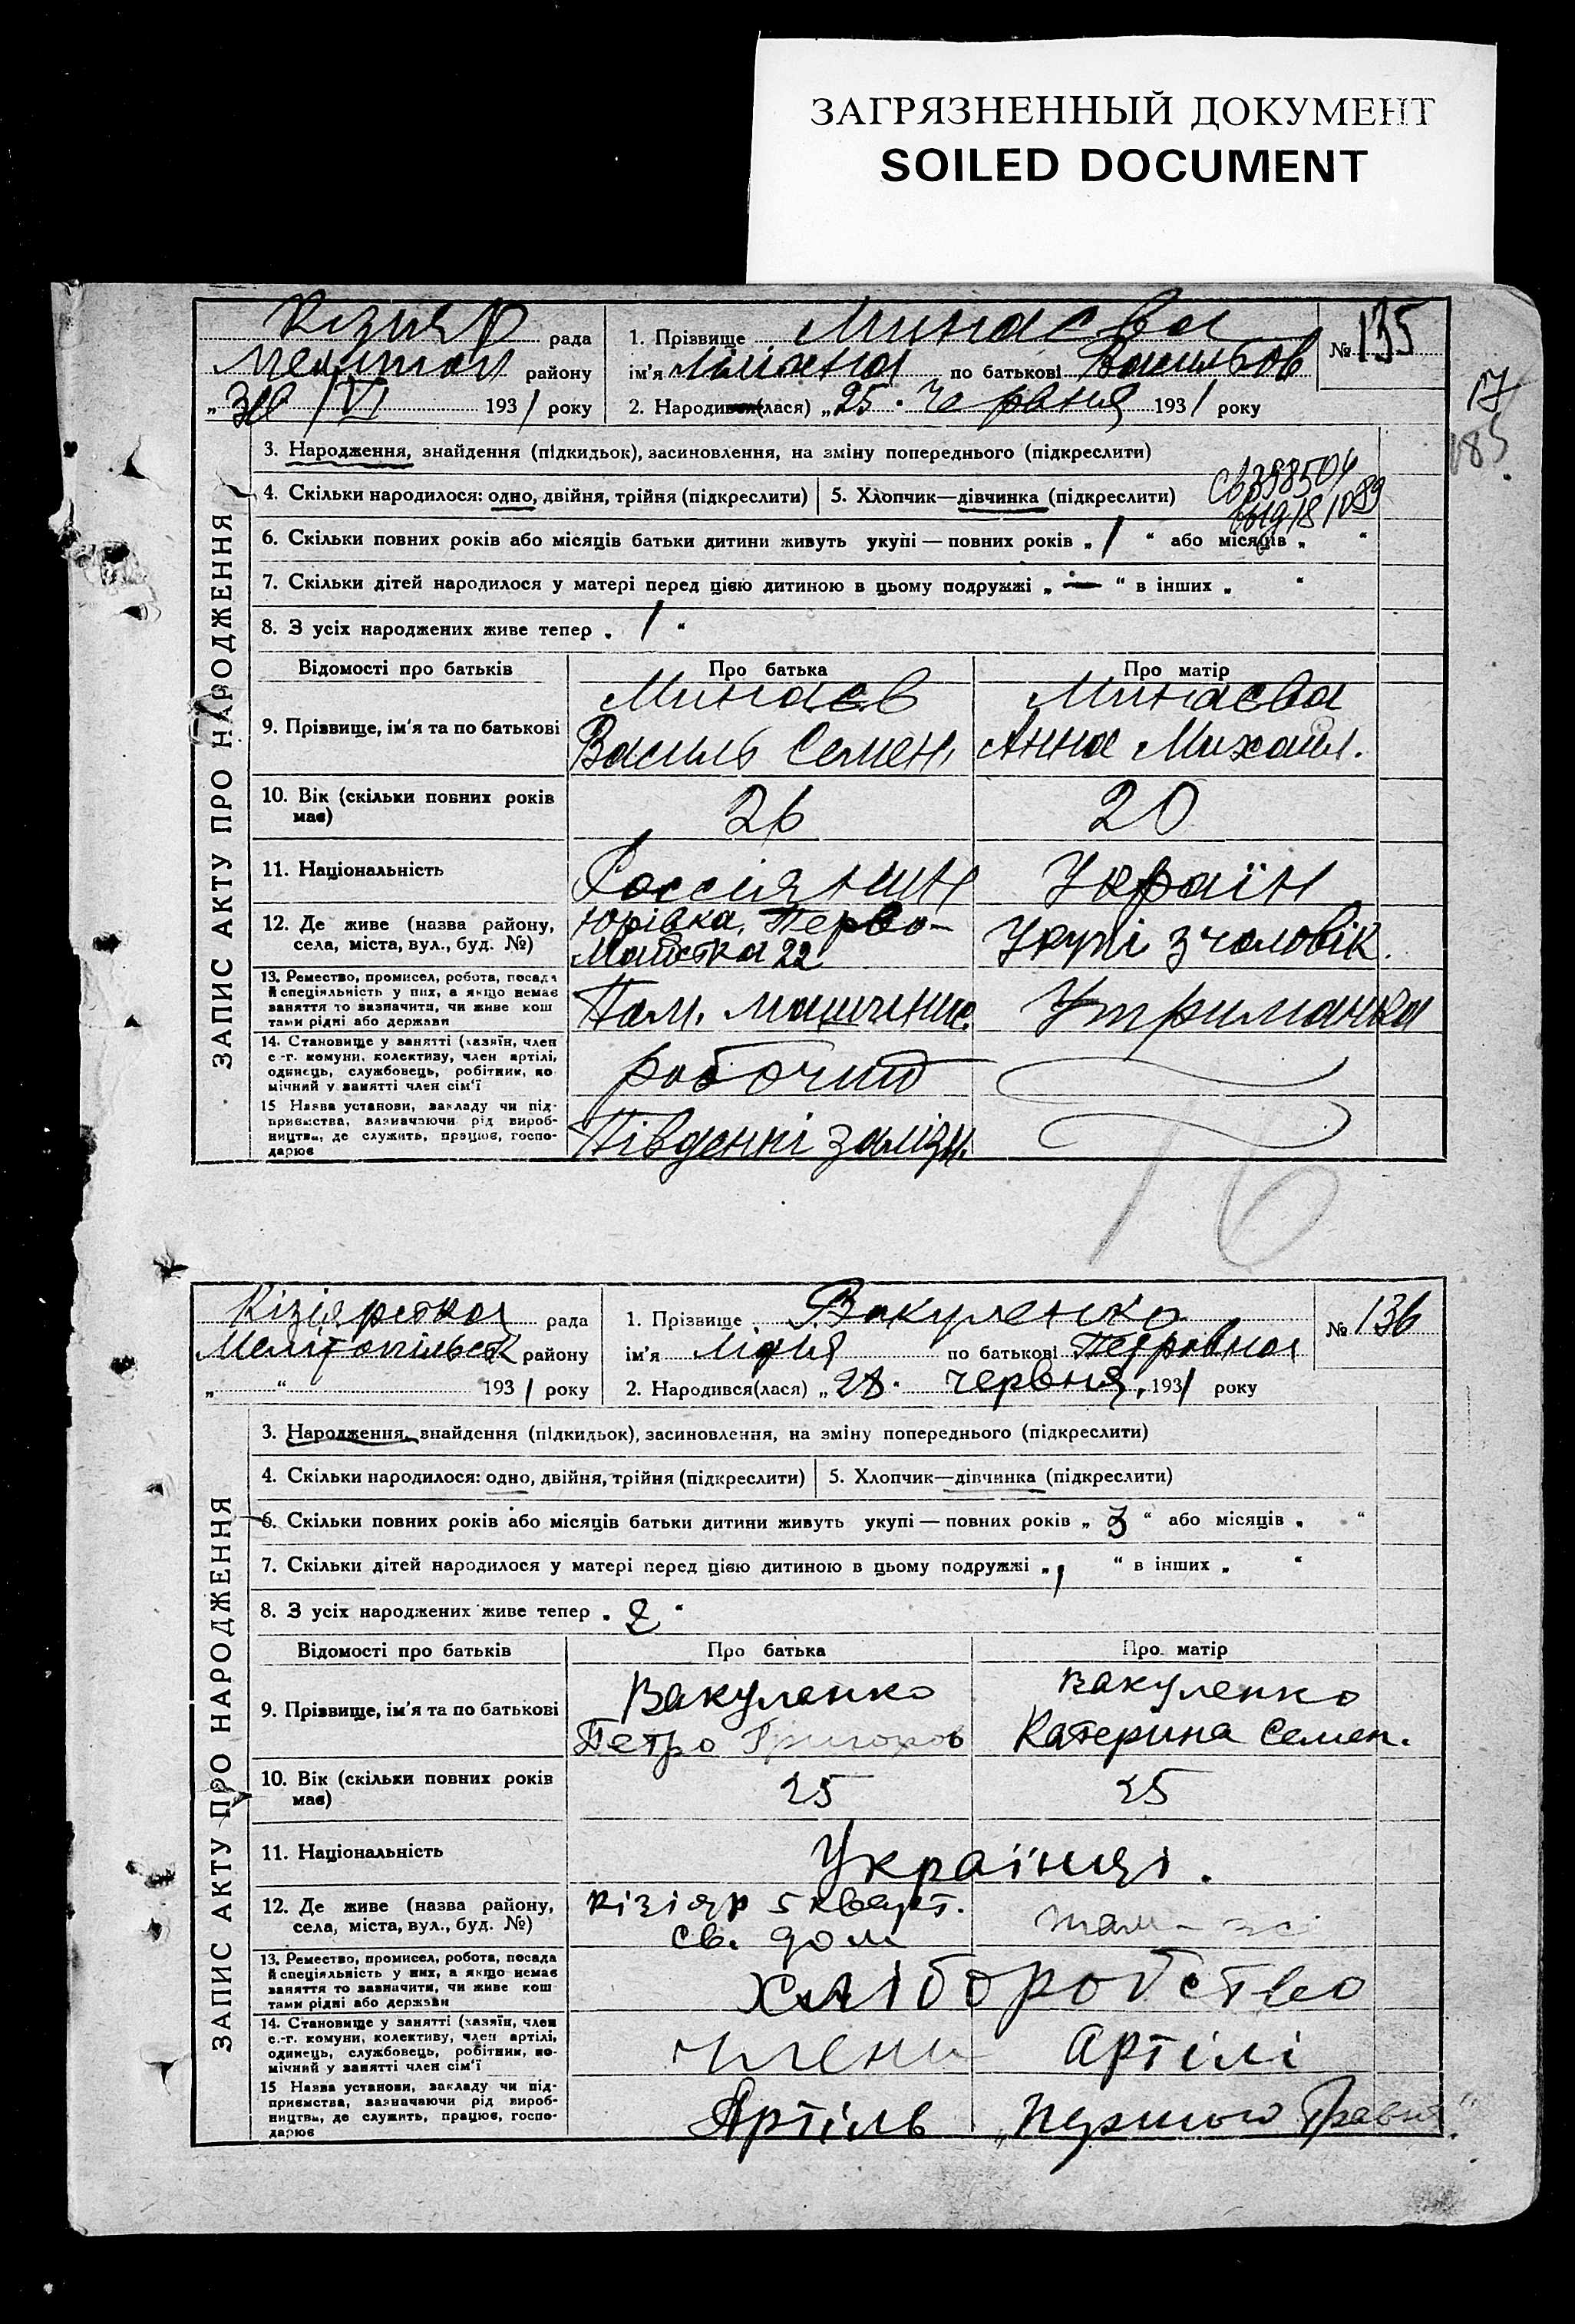 ЗАГРЯЗНЕННЫЙ ДОКУМЕНТ
SOILED DOCUMENT
Кізияр рада
Мелитоп району
„30 /VI 1931 року
1. Прізвище Минаєва
ім'я по батькові Васильов
2. Народився(лася) „25. Червня 1931 року
№ 135
17
185
ЗАПИС АКТУ ПРО НАРОДЖЕННЯ
3. Народження, знайдення (підкидьок), засиновлення, на зміну попереднього (підкреслити)
4. Скільки народилося: одно, двійня, трійня (підкреслити) 5. Хлопчик—дівчинка (підкреслити)
6. Скільки повних років або місяців батьки дитини живуть укупі — повних років „ 1 “ або місяців „ “
7. Скільки дітей народилося у матері перед цією дитиною в цьому подружжі „ — “ в інших „ “
8. З усіх народжених живе тепер „ 1 “
Відомості про батьків Про батька Про матір
9. Прізвище, ім'я та по батькові
Минаєв
Василь Семен.
Минаєва
Анна Михаил.
10. Вік (скільки повних років має) 26 20
11. Національність Россіянин Україн
12. Де живе (назва району, села, міста, вул., буд. №)
Юрівка, Перво-
Майська 22
Укупі з чоловік.
13. Ремество, промисел, робота, посада
й спеціяльність у них, а якщо немає
заняття то зазначити, чи живе кош
тами рідні або держави
Пом. машинис. Утриманка
14. Становище у занятті (хазяїн, член
с.-г. комуни, колективу, член артілі,
одинець, службовець, робітник, по
мічний у занятті член сім'ї
робочий
15 Назва установи, закладу чи під-
приємства, зазначаючи рід вироб-
ництва, де служить, працює, госпо-
дарює
Південні залізн.
Кізіярська рада
Мелітопільськ району
„ “ 1931 року
1. Прізвище Вакуленко
ім'я Лідія по батькові Петровна
2. Народився(лася) „28. червня, 1931 року
№ 136
ЗАПИС АКТУ ПРО НАРОДЖЕННЯ
3. Народження, знайдення (підкидьок), засиновлення, на зміну попереднього (підкреслити)
4. Скільки народилося: одно, двійня, трійня (підкреслити) 5. Хлопчик—дівчинка (підкреслити)
6. Скільки повних років або місяців батьки дитини живуть укупі — повних років „ 3 “ або місяців „ “
7. Скільки дітей народилося у матері перед цією дитиною в цьому подружжі „ 1 “ в інших „ “
8. З усіх народжених живе тепер „ 2 “
Відомості про батьків Про батька Про матір
9. Прізвище, ім'я та по батькові
Вакуленко
Петро Григоров
Вакуленко
Катерина Семен.
10. Вік (скільки повних років має) 25 25
11. Національність Українці.
12. Де живе (назва району, села, міста, вул., буд. №)
Кізіяр 5 кварт.
св. дом
там же
13. Ремество, промисел, робота, посада
й спеціяльність у них, а якщо немає
заняття то зазначити, чи живе кош
тами рідні або держави
хліборобство
14. Становище у занятті (хазяїн, член
с.-г. комуни, колективу, член артілі,
одинець, службовець, робітник, по-
мічний у занятті член сім'ї
члени Артілі
15 Назва установи, закладу чи під-
приємства, зазначаючи рід вироб-
ництва, де служить, працює, госпо-
дарює
Артіль „Першого Травня“.